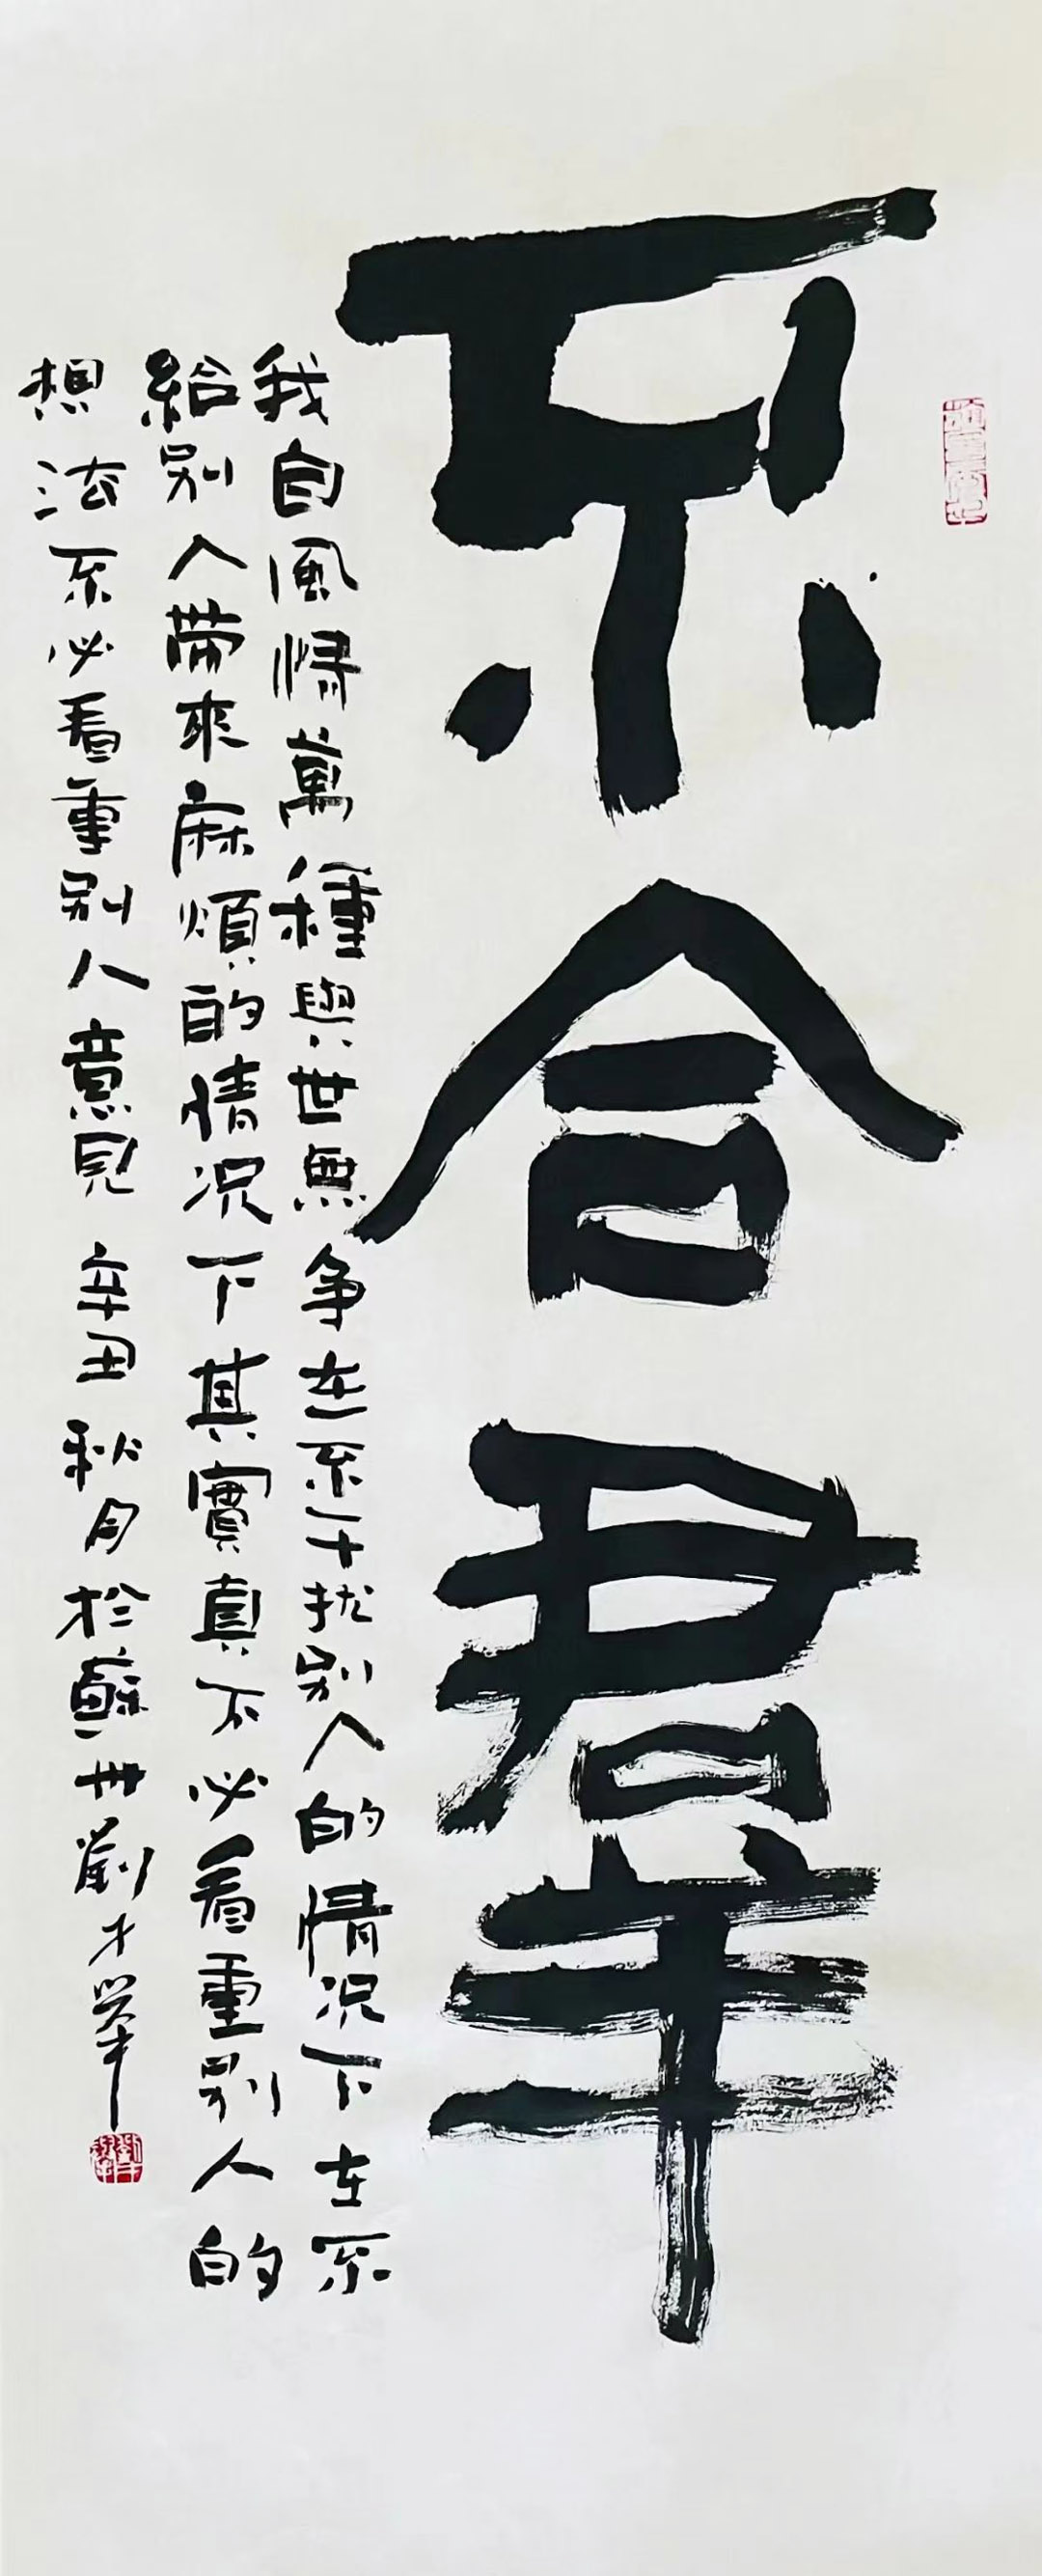 不合羣
我自風情萬種與世無争在不干扰别人的情况下在不
給别人带來麻煩的情况下其實真不必看重别人的
想法不必看重别人意見 辛丑秋月於蘇州劉才举